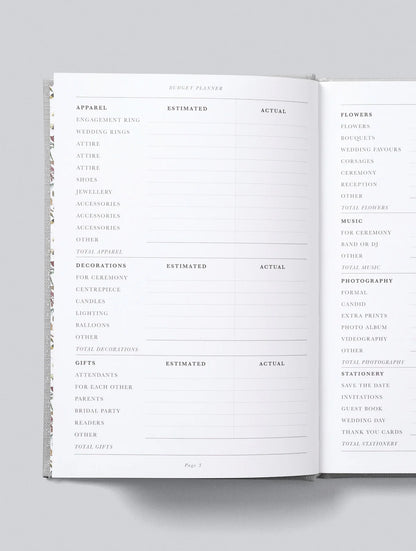 BUDGET PLANNER
APPAREL ESTIMATED ACTUAL
ENGAGEMENT RING
WEDDING RINGS
ATTIRE
ATTIRE
ATTIRE
SHOES
JEWELLERY
ACCESSORIES
ACCESSORIES
ACCESSORIES
OTHER
TOTAL APPAREL
DECORATIONS ESTIMATED ACTUAL
FOR CEREMONY
CENTREPIECE
CANDLES
LIGHTING
BALLOONS
OTHER
TOTAL DECORATIONS
GIFTS ESTIMATED ACTUAL
ATTENDANTS
FOR EACH OTHER
PARENTS
BRIDAL PARTY
READERS
OTHER
TOTAL GIFTS
Page 5
FLOWERS
FLOWERS
BOUQUETS
WEDDING FAVOURS
CORSAGES
CEREMONY
RECEPTION
OTHER
TOTAL FLOWERS
MUSIC
FOR CEREMONY
BAND OR DJ
OTHER
TOTAL MUSIC
PHOTOGRAPHY
FORMAL
CANDID
EXTRA PRINTS
PHOTO ALBUM
VIDEOGRAPHY
OTHER
TOTAL PHOTOGRAPHY
STATIONERY
SAVE THE DATE
INVITATIONS
GUEST BOOK
WEDDING DAY
THANK YOU CARDS
TOTAL STATIONERY